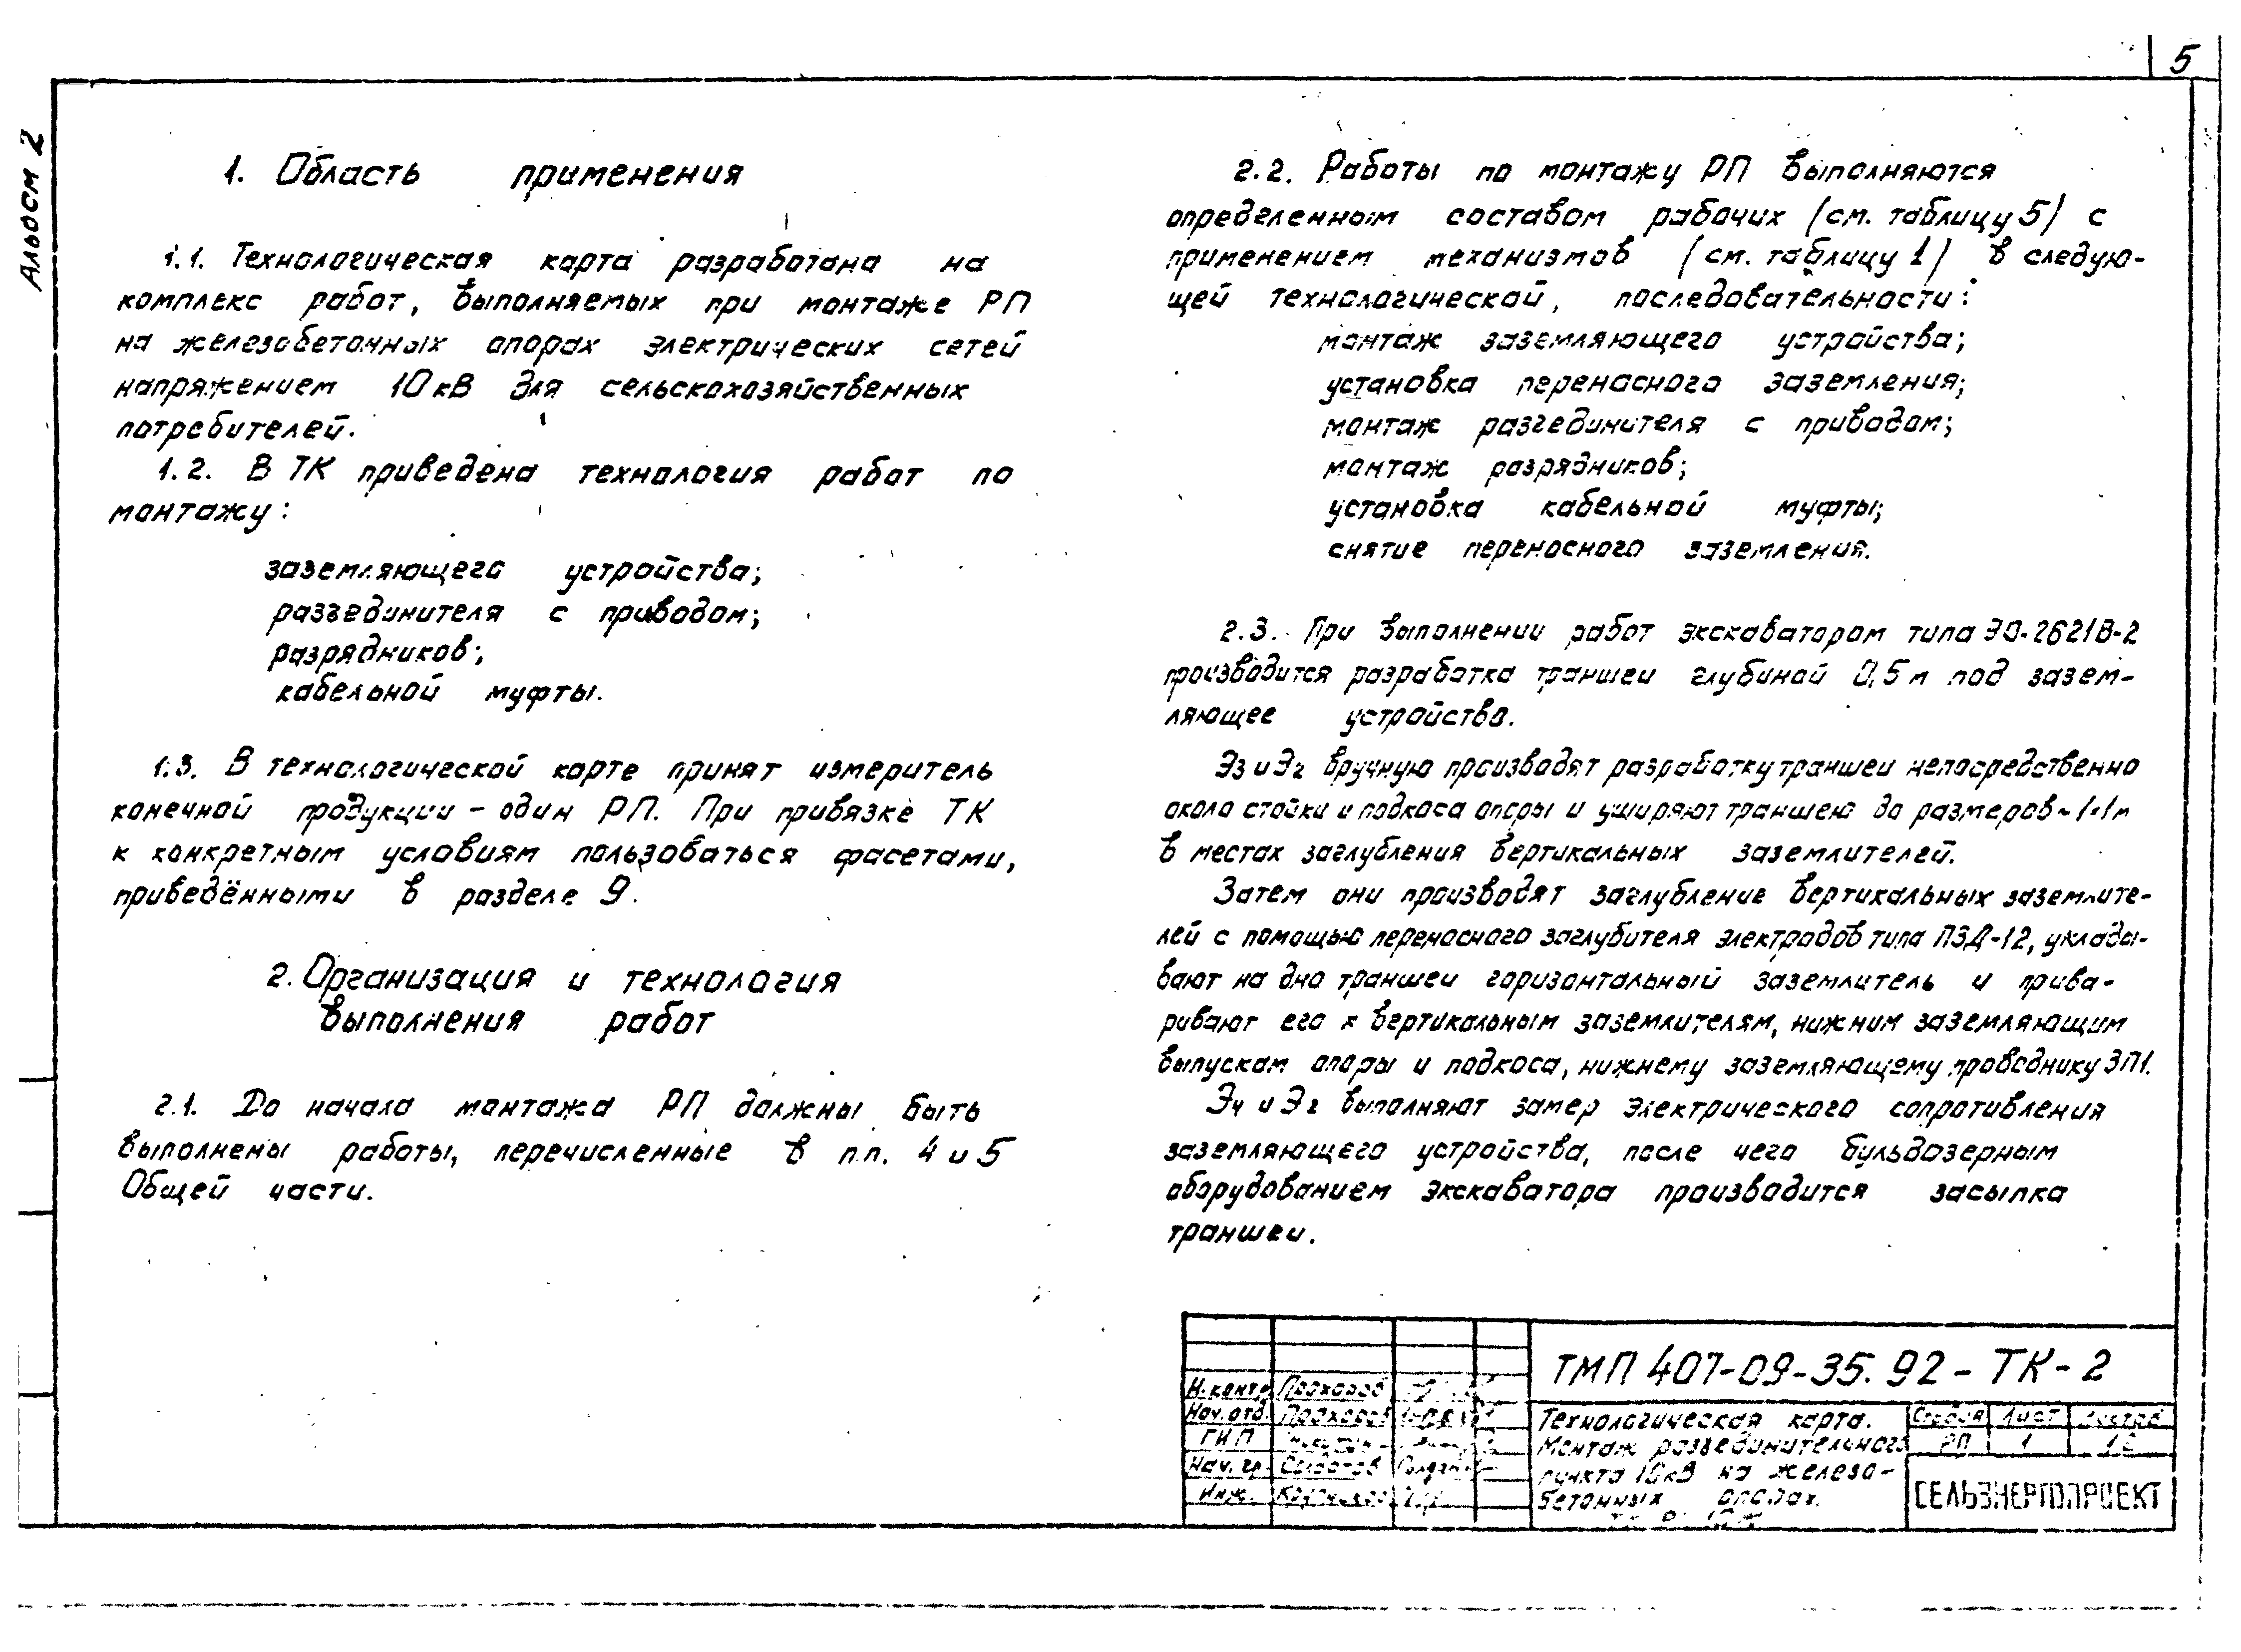 5
Альбом 2
1. Область применения
1.1. Технологическая карта разработана на
комплекс работ, выполняемых при монтаже РП
на железобетонных опорах электрических сетей
напряжением 10кВ для сельскохозяйственных
потребителей.
1.2. В ТК приведена технология работ по
монтажу:
заземляющего устройства;
разъединителя с приводом;
разрядников;
кабельной муфты.
1.3. В технологической карте принят измеритель
конечной продукции - один РП. При привязке ТК
к конкретным условиям пользоваться фасетами,
приведёнными в разделе 9.
2. Организация и технология
выполнения работ
2.1. До начала монтажа РП должны быть
выполнены работы, перечисленные в п.п. 4 и 5
Общей части.
2.2. Работы по монтажу РП выполняются
определенным составом рабочих (см. таблицу 5) с
применением механизмов (см. таблицу 1) в следую-
щей технологической, последовательности:
монтаж заземляющего устройства;
установка переносного заземления;
монтаж разъединителя с приводом;
монтаж разрядников;
установка кабельной муфты;
снятие переносного заземления.
2.3. При выполнении работ экскаватором типа ЭО-2621В-2
производится разработка траншеи глубиной 0,5м под зазем-
ляющее устройство.
Э3 и Э2 вручную производят разработку траншеи непосредственно
около стойки и подкоса опоры и уширяют траншею до размеров ~1×1м
в местах заглубления вертикальных заземлителей.
Затем они производят заглубление вертикальных заземлите-
лей с помощью переносного заглубителя электродов типа ПЗД-12, уклады-
вают на дно траншеи горизонтальный заземлитель и прива-
ривают его к вертикальным заземлителям, нижним заземляющим
выпускам опоры и подкоса, нижнему заземляющему проводнику ЗП1.
Э4 и Э2 выполняют замер электрического сопротивления
заземляющего устройства, после чего бульдозерным
оборудованием экскаватора производится засыпка
траншеи.
ТМП 407-09-35.92 - ТК - 2
Н.контр Прохоров
Нач.отд. Прохоров
ГИП
Нач. гр. Солдатов
Инж.
Технологическая карта.
Монтаж разъединительного
пункта 10кВ на железо-
бетонных опорах.
Стадия Лист Листов
РП 1
СЕЛЬЭНЕРГОПРОЕКТ